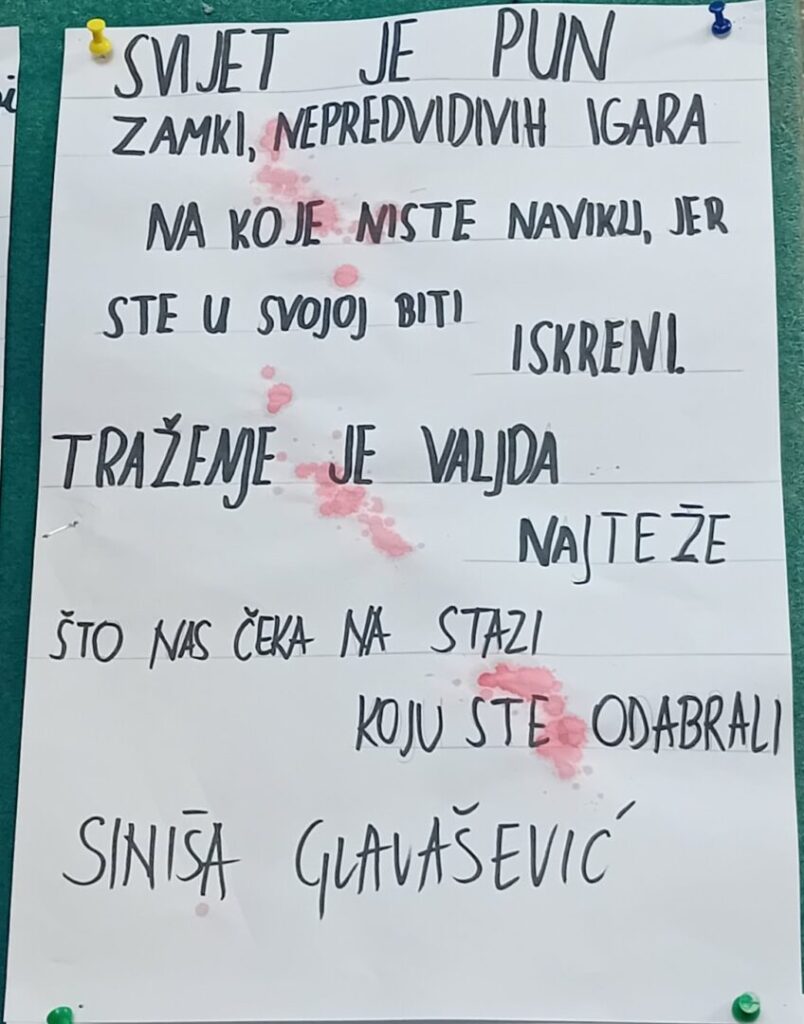 SVIJET JE PUN
ZAMKI, NEPREDVIDIVIH IGARA
NA KOJE NISTE NAVIKLI, JER
STE U SVOJOJ BITI
ISKRENI.
TRAŽENJE JE VALJDA
NAJTEŽE
ŠTO NAS ČEKA NA STAZI
KOJU STE ODABRALI
SINIŠA GLAVAŠEVIĆ